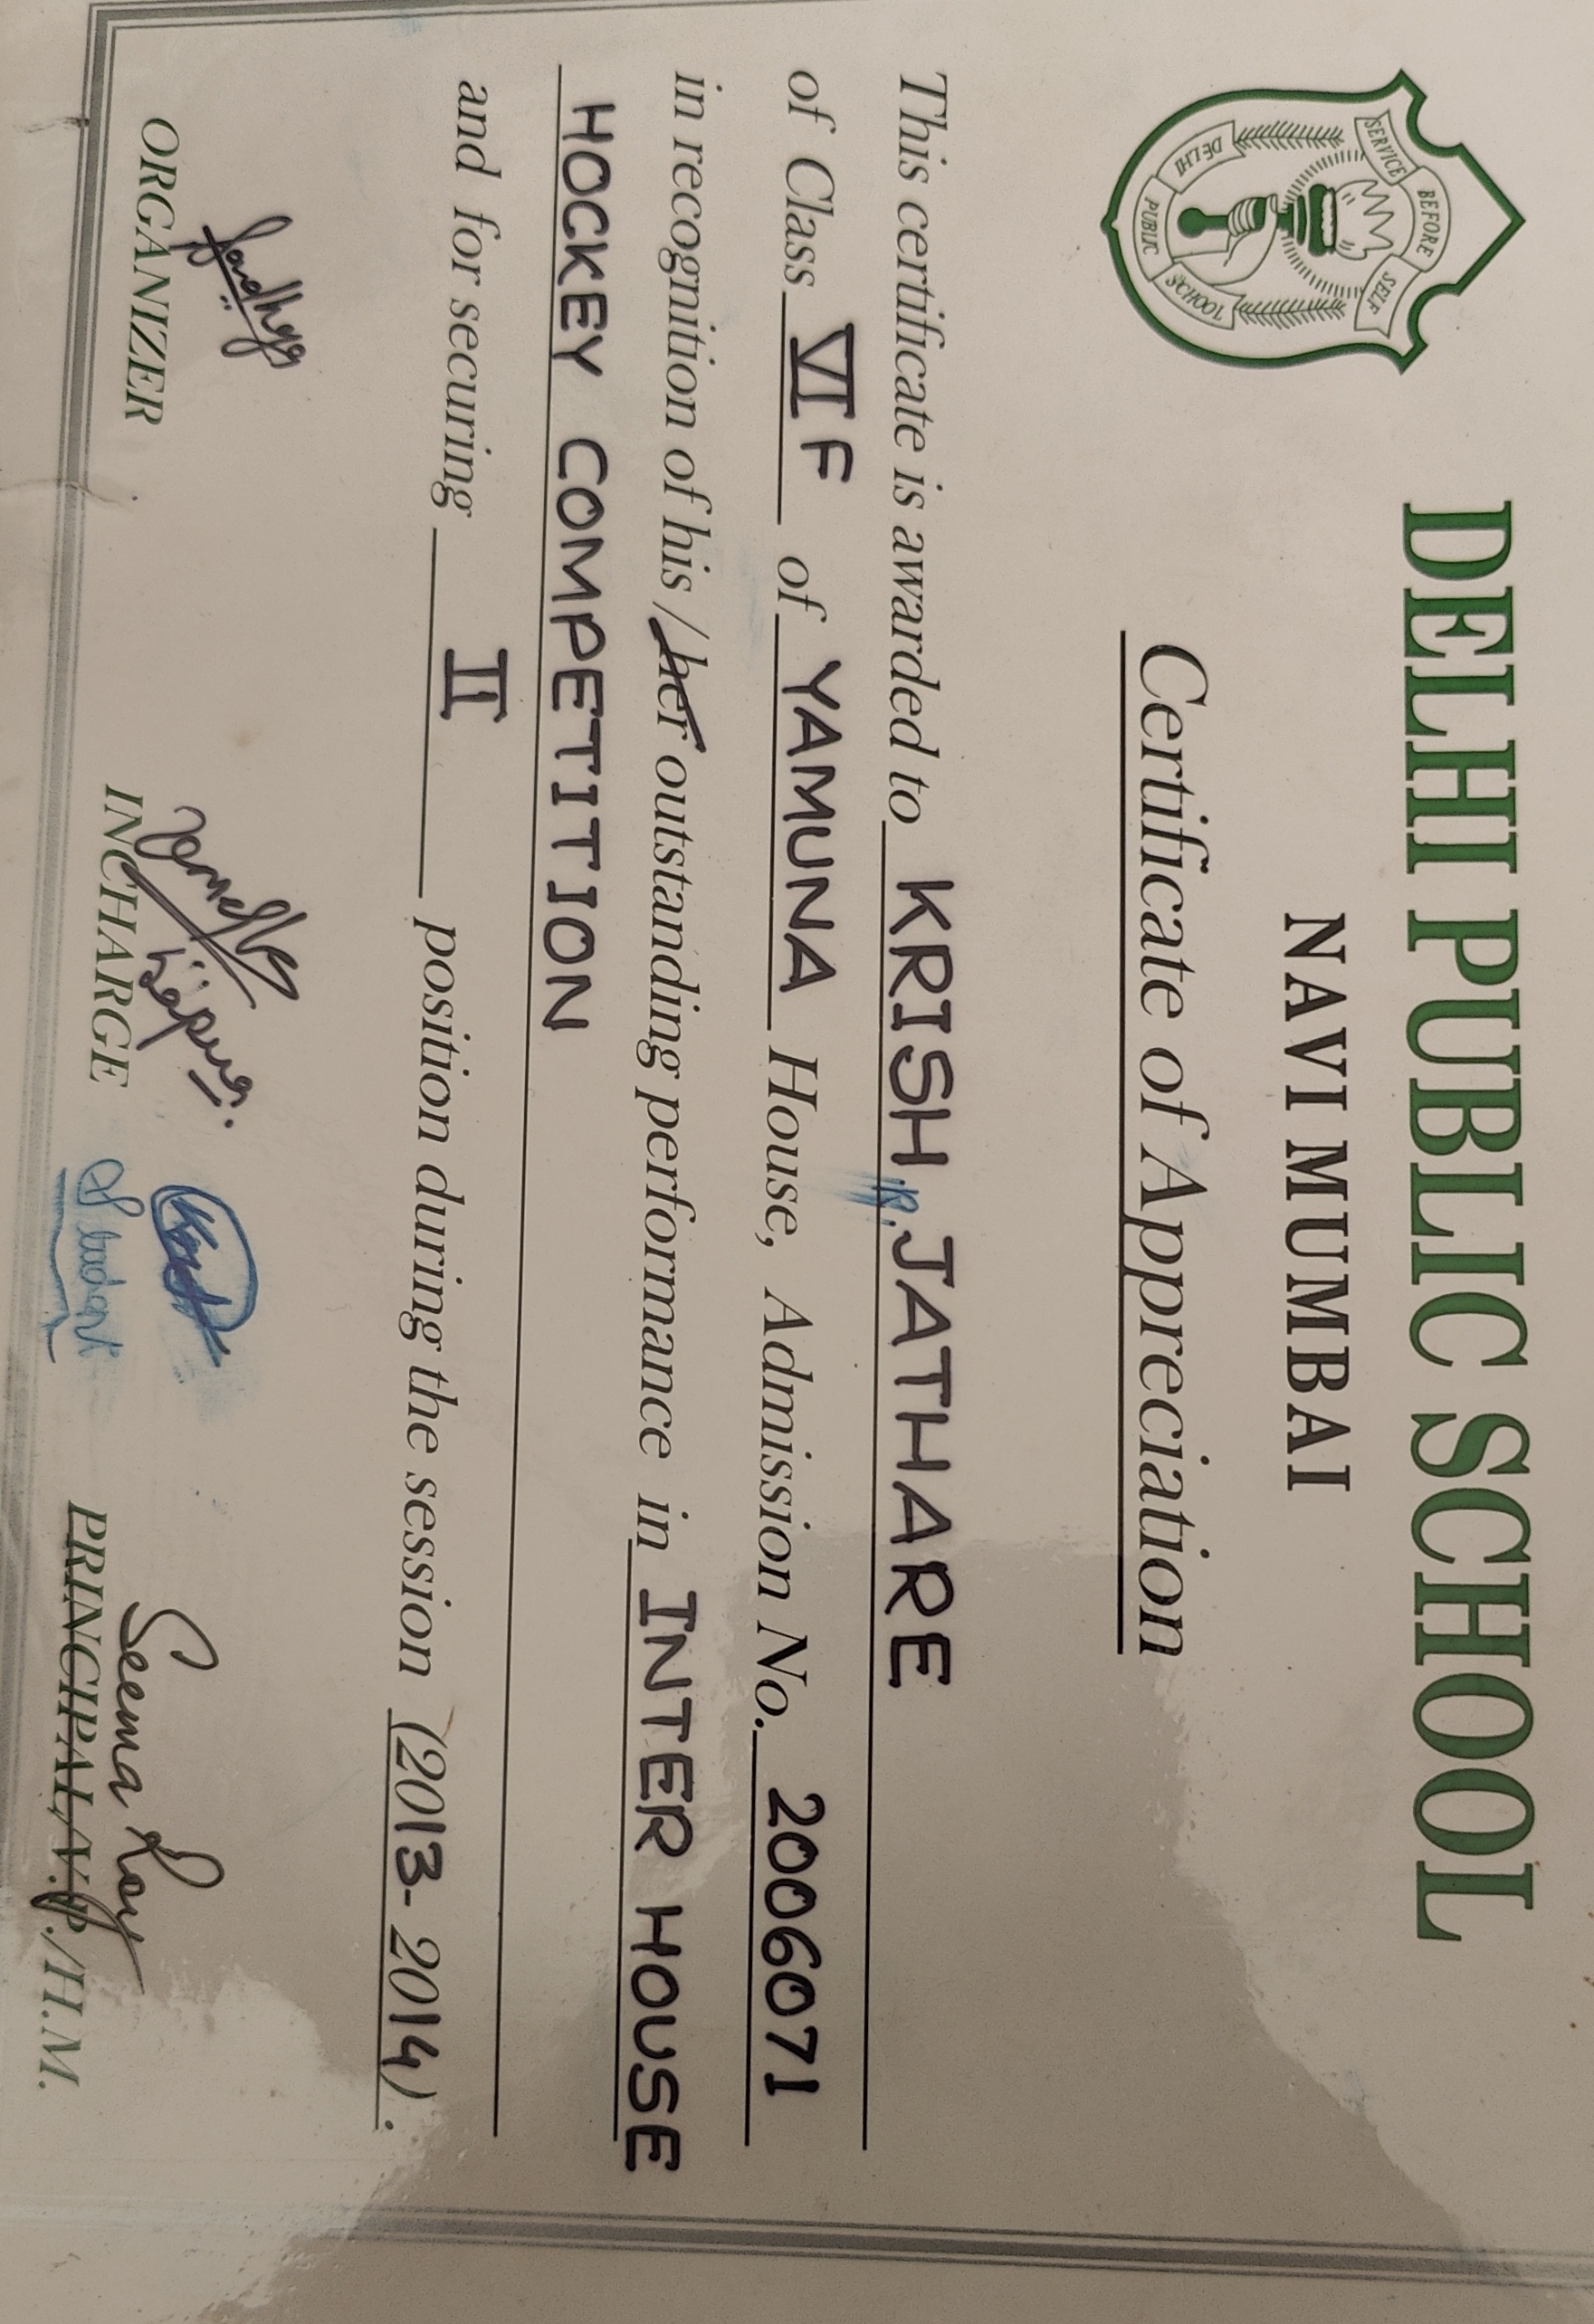 SERVICE BEFORE SELF
DELHI PUBLIC SCHOOL
DELHI PUBLIC SCHOOL
NAVI MUMBAI
Certificate of Appreciation
This certificate is awarded to KRISH R. JATHARE
of Class VI F of YAMUNA House, Admission No. 2006071
in recognition of his / her outstanding performance in INTER HOUSE
HOCKEY COMPETITION
and for securing II position during the session (2013-2014).
Seema Roy
Student
ORGANIZER INCHARGE PRINCIPAL/V.P./H.M.